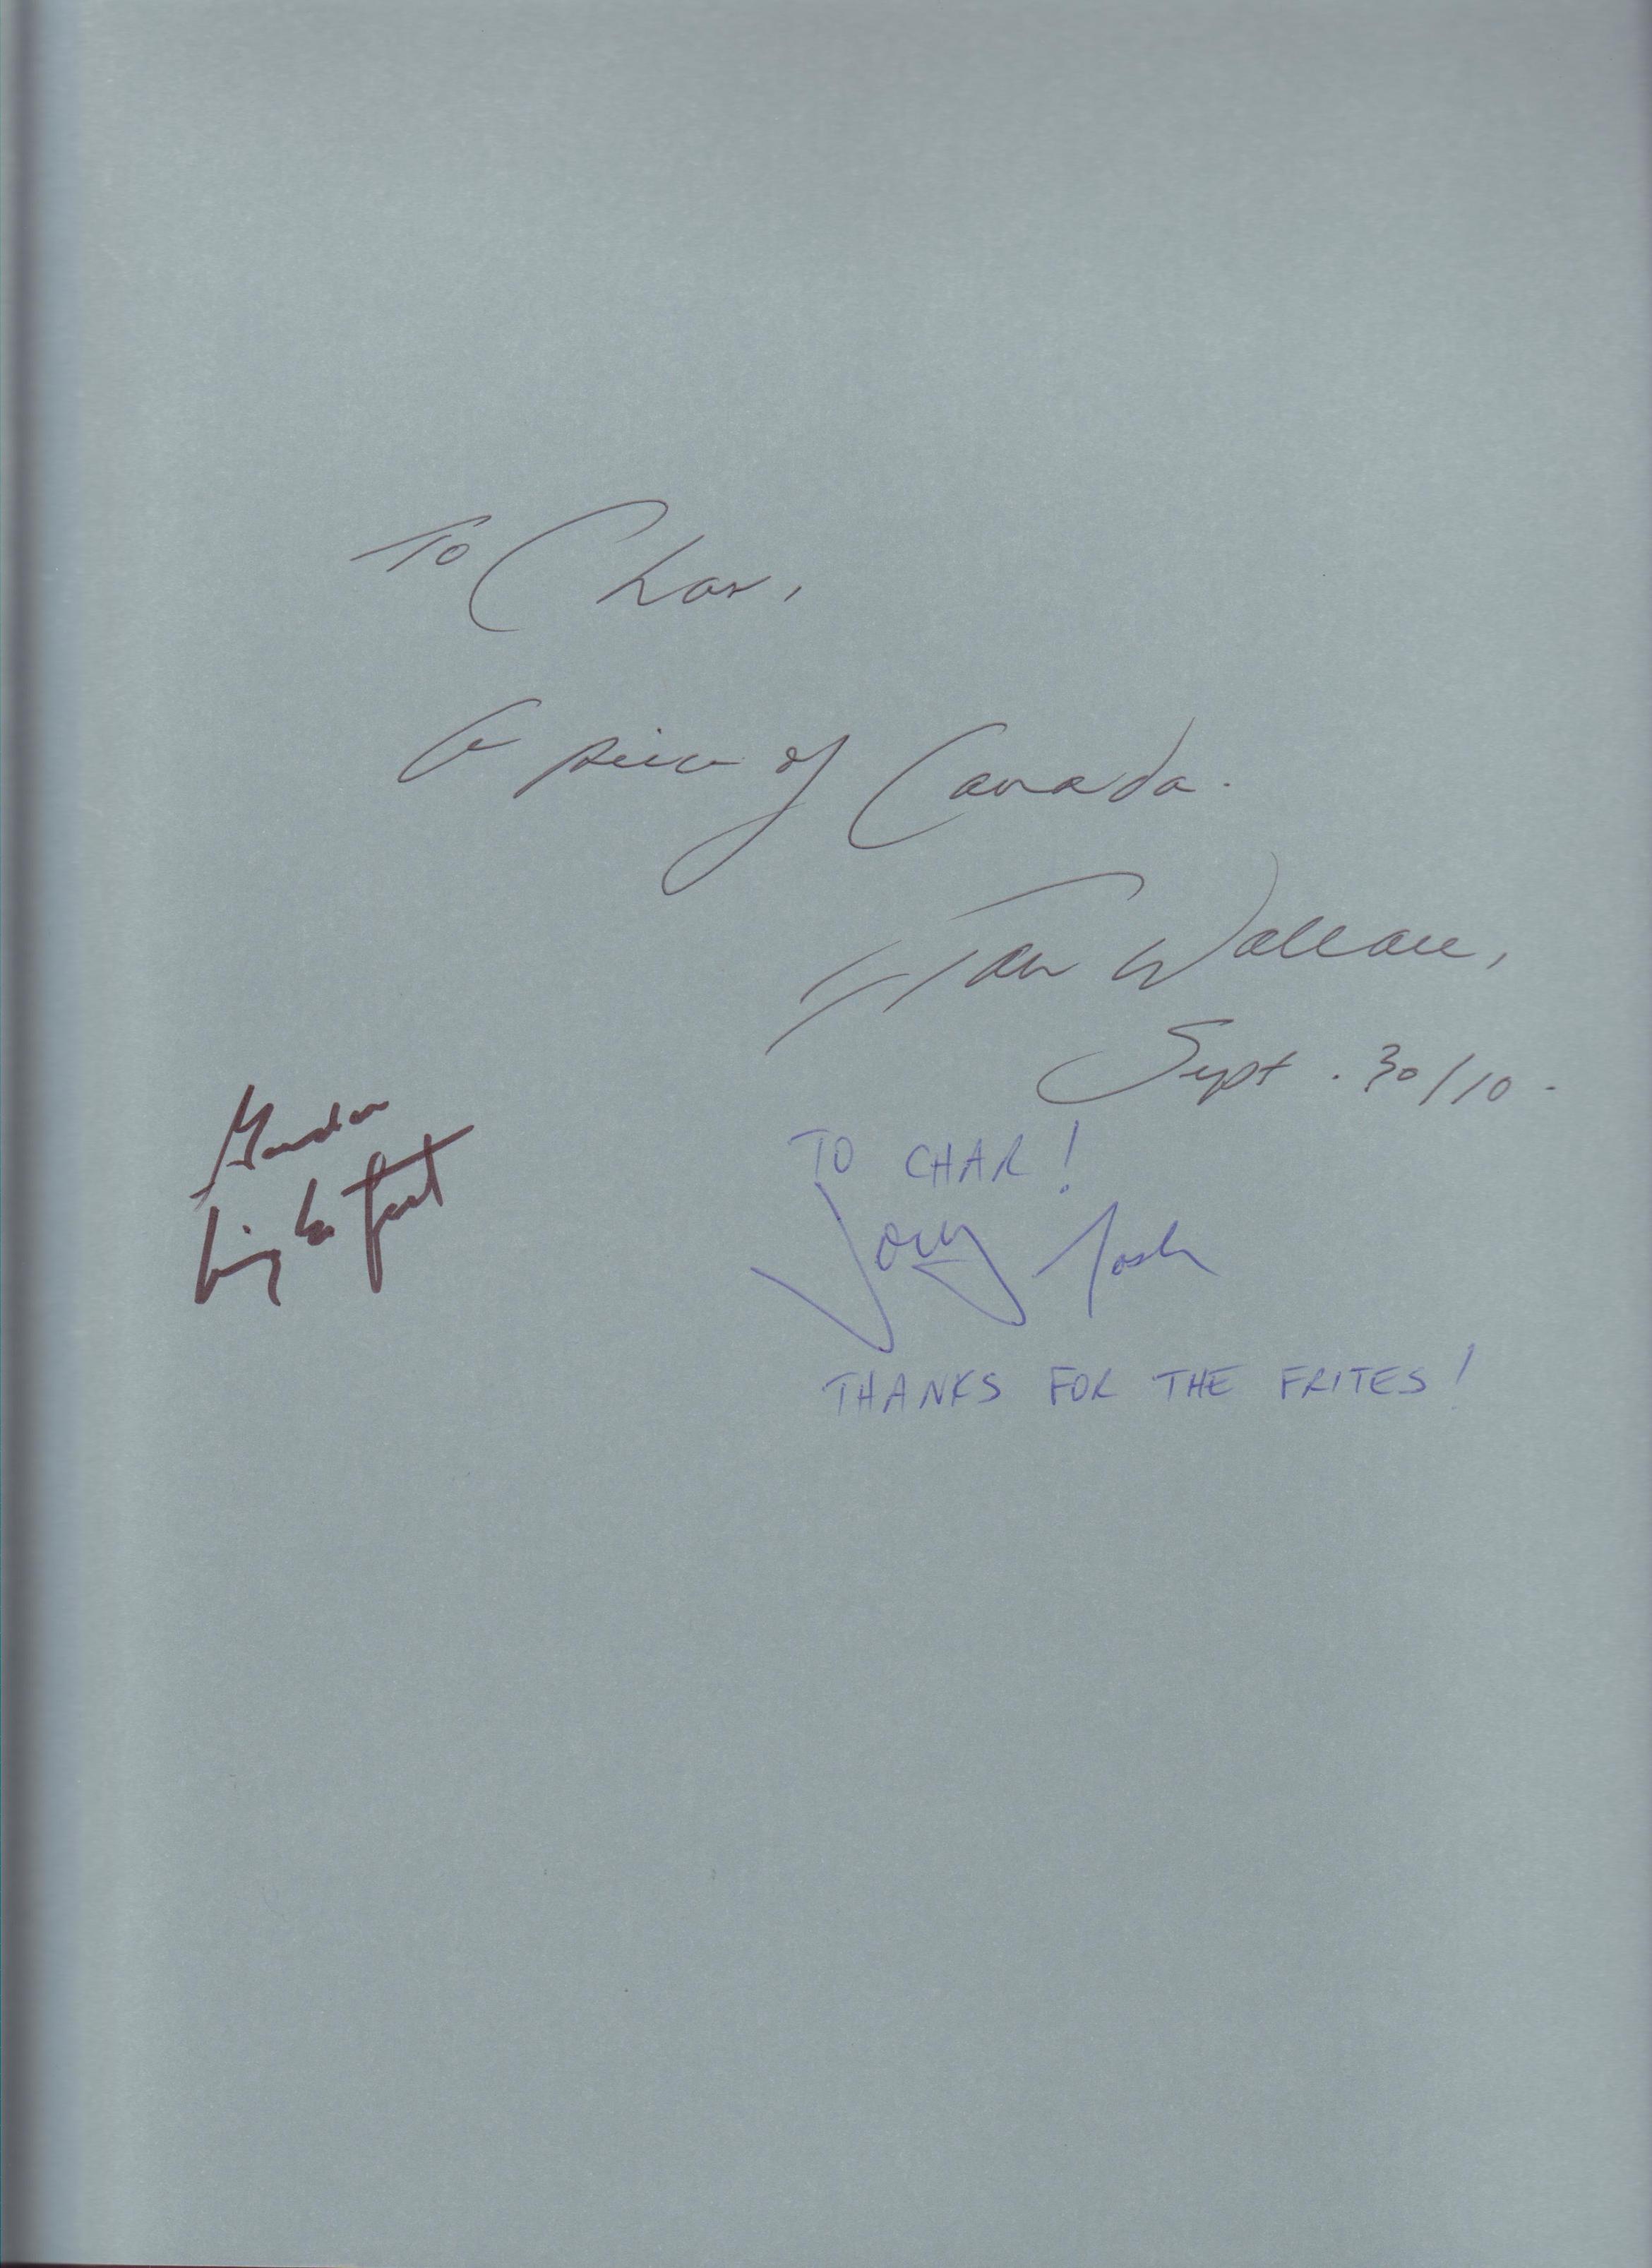 To Char,
A piece of Canada.
Ian Wallace,
Sept. 30/10.
Gordon
Lightfoot
TO CHAR!
Jory Nash
THANKS FOR THE FRITES!